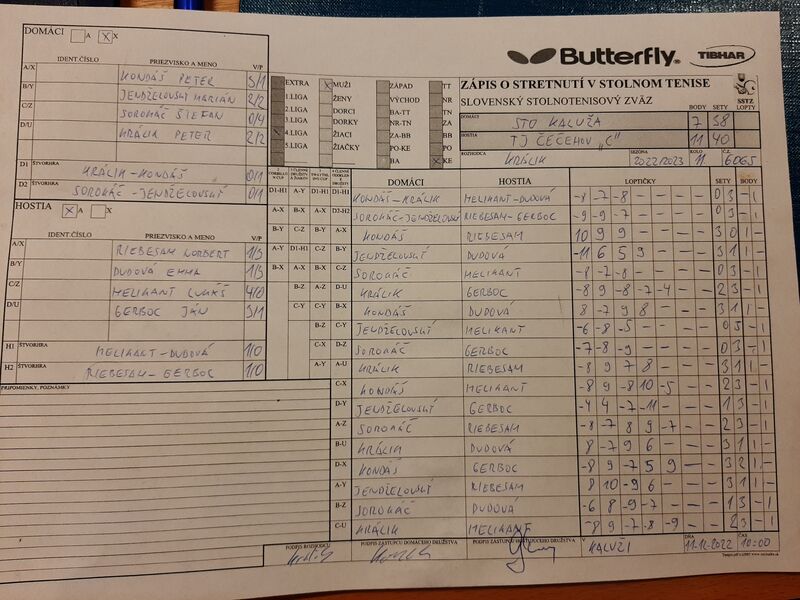 DOMÁCI A X X
IDENT.ČÍSLO PRIEZVISKO A MENO V/P
A/X KONDÁŠ PETER 3/1
B/Y JENDŽELOVSKÝ MARIÁN 2/2
C/Z SOROKÁČ ŠTEFAN 0/4
D/U KRÁLIK PETER 2/2
D1 ŠTVORHRA KRÁLIK-KONDÁŠ 0/1
D2 ŠTVORHRA SOROKÁČ-JENDŽELOVSKÝ 0/1
HOSTIA X A X
IDENT.ČÍSLO PRIEZVISKO A MENO V/P
A/X RIEBESAM NORBERT 1/3
B/Y DUDOVÁ EMMA 1/3
C/Z HELIKANT LUKÁŠ 4/0
D/U GERBOC JÁN 3/1
H1 ŠTVORHRA HELIKANT-DUDOVÁ 1/0
H2 ŠTVORHRA RIEBESAM-GERBOC 1/0
PRIPOMIENKY, POZNÁMKY
Butterfly TIBHAR
EXTRA X MUŽI ZÁPAD TT
1.LIGA ŽENY VÝCHOD NR
2.LIGA DORCI BA-TT TN
3.LIGA DORKY NR-TN ZA
X 4.LIGA ŽIACI ZA-BB BB
5.LIGA ŽIAČKY PO-KE PO
BA X KE
ZÁPIS O STRETNUTÍ V STOLNOM TENISE
SLOVENSKÝ STOLNOTENISOVÝ ZVÄZ SSTZ
BODY SETY LOPTY
DOMÁCI STO KALUŽA 7 38
HOSTIA TJ ČEČEHOV "C" 11 40
ROZHODCA KRÁLIK SEZÓNA 2022/2023 KOLO 11 Č. 6065
DOMÁCI HOSTIA LOPTIČKY SETY BODY
D1-H1 A-Y D1-H1 D1-H1 KONDÁŠ-KRÁLIK HELIKANT-DUDOVÁ -8 -7 -8 - - - - 0 3 - 1
A-X B-X A-X D2-H2 SOROKÁČ-JENDŽELOVSKÝ RIEBESAM-GERBOC -9 -9 -7 - - - - 0 3 - 1
B-Y C-Z B-Y A-X KONDÁŠ RIEBESAM 10 9 9 - - - - 3 0 1 -
A-Y D1-H1 C-Z B-Y JENDŽELOVSKÝ DUDOVÁ -11 6 5 9 - - - 3 1 1 -
B-X A-X B-X C-Z SOROKÁČ HELIKANT -8 -7 -8 - - - - 0 3 - 1
B-Z A-Z D-U KRÁLIK GERBOC -8 9 -8 -7 -4 - - 2 3 - 1
C-Y C-Y B-X KONDÁŠ DUDOVÁ 8 -7 9 8 - - - 3 1 1 -
B-Z C-Y JENDŽELOVSKÝ HELIKANT -6 -8 -5 - - - - 0 3 - 1
C-X D-Z SOROKÁČ GERBOC -7 -8 -9 - - - - 0 3 - 1
A-Y A-U KRÁLIK RIEBESAM -8 9 7 8 - - - 3 1 1 -
C-X KONDÁŠ HELIKANT -8 9 -8 10 -5 - - 2 3 - 1
D-Y JENDŽELOVSKÝ GERBOC -4 4 -7 -11 - - - 1 3 - 1
A-Z SOROKÁČ RIEBESAM -8 -7 8 9 -7 - - 2 3 - 1
B-U KRÁLIK DUDOVÁ 8 -7 9 6 - - - 3 1 1 -
D-X KONDÁŠ GERBOC -8 9 -7 5 9 - - 3 2 1 -
A-Y JENDŽELOVSKÝ RIEBESAM 8 10 -9 6 - - - 3 1 1 -
B-Z SOROKÁČ DUDOVÁ -6 8 -9 -7 - - - 1 3 - 1
C-U KRÁLIK HELIKANT -8 9 -7 8 -9 - - 2 3 - 1
PODPIS ROZHODCU PODPIS ZÁSTUPCU DOMÁCEHO DRUŽSTVA PODPIS ZÁSTUPCU HOSŤUJÚCEHO DRUŽSTVA V KALUŽI DŇA 11.12.2022 ČAS 10:00